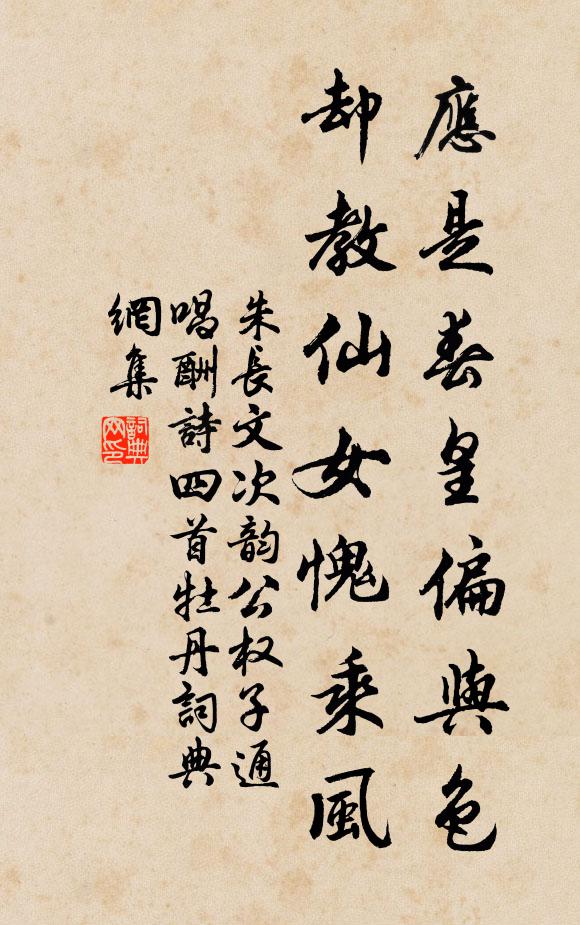 應是春皇偏與色
却教仙女愧乘風
朱長文次韵公权子通
唱酬詩四首牡丹詞典
網集
詞典
网印